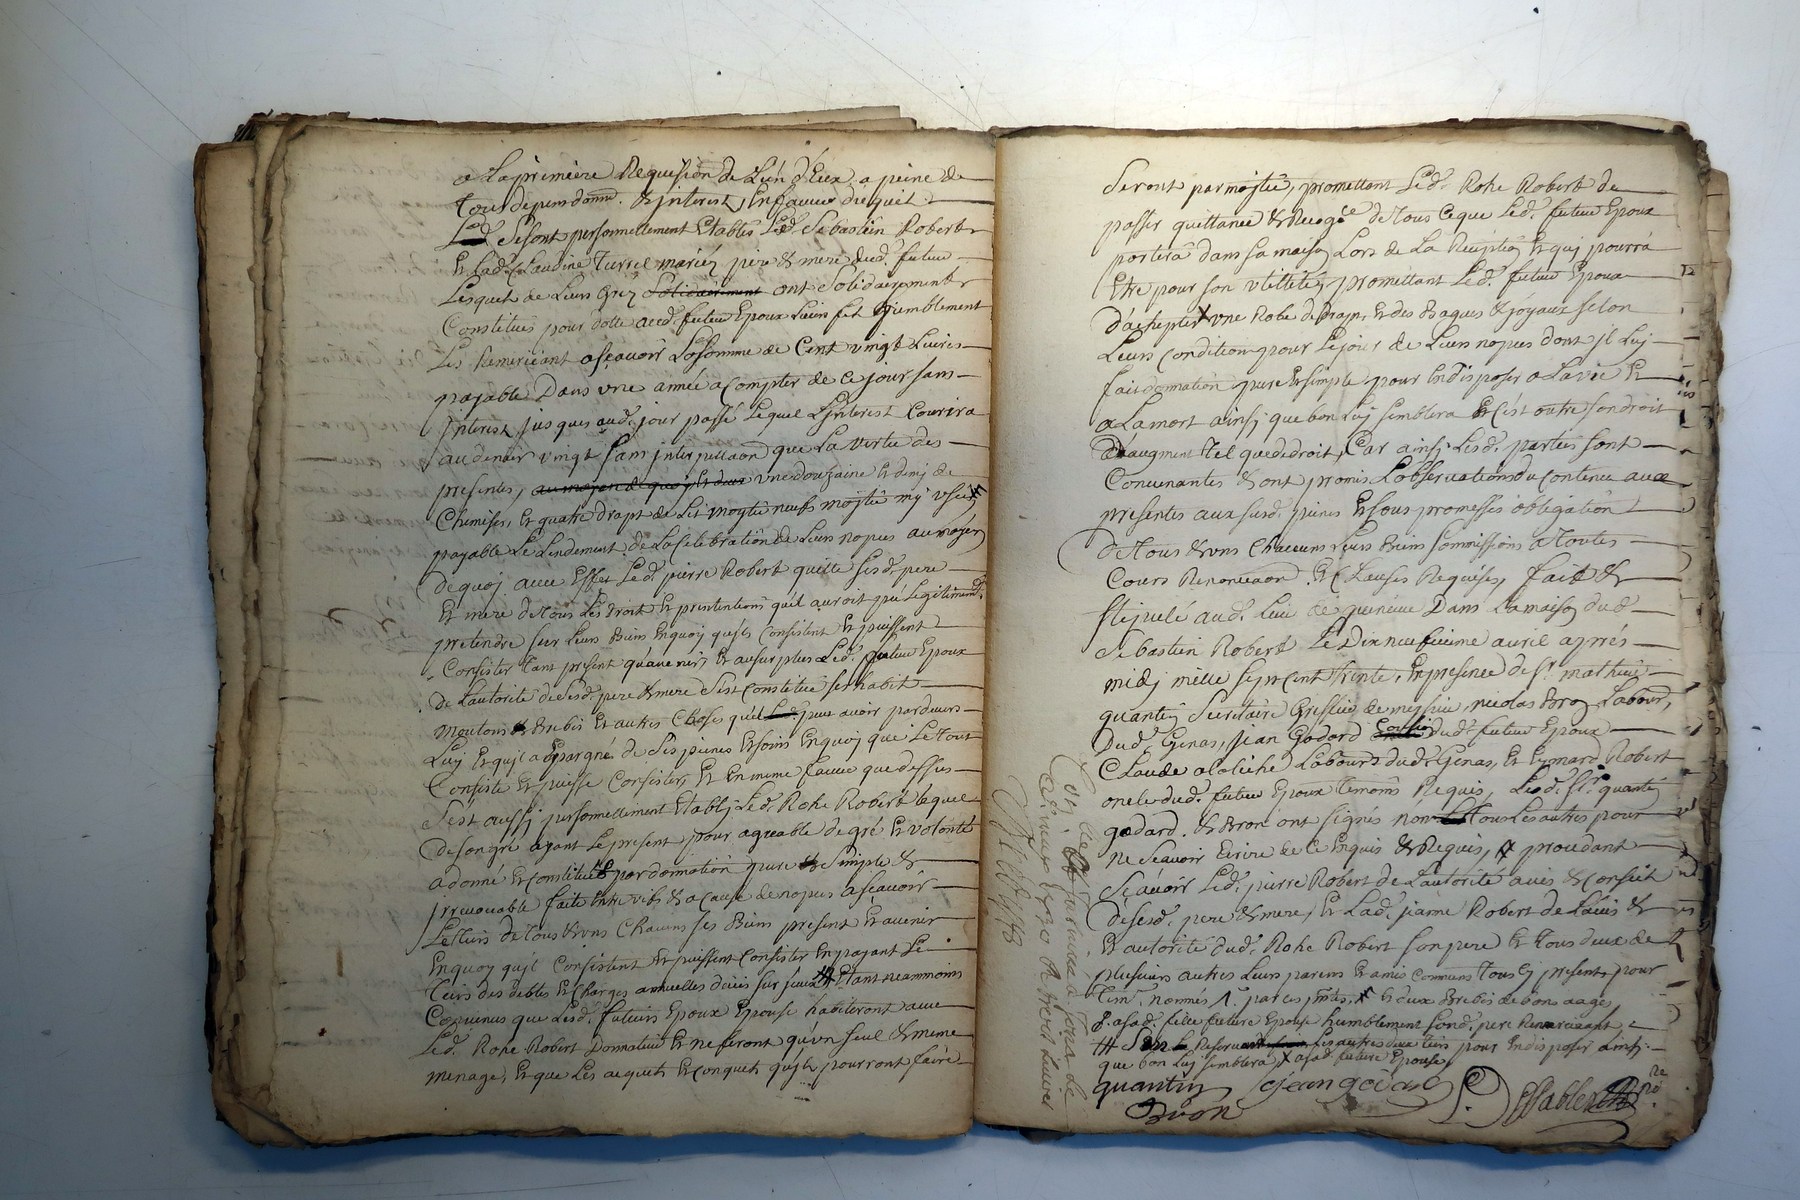 a La premiere Requision de L'un d'Eux, a peine de
Tous depens domm. & interest, En faveur duquel
Led. Se sont personnellement Etablis Led. Sebastien Robert
Et Lad. Claudine Turrel mariéz pere & mere dud. futeur
Lesquels de Leurs Gréz Solidairement ont Solidairement
Constitués pour dotte aud. futeur Epoux Leur fils humblement
Les Remerciant ascavoir La Somme de Cent vingt Livres
payable Dans une année a Compter de Ce jour sans
Interest jusques aud. jour passé Lequel L'jnterest Courira
au denier vingt sans jnterpellaon que La vertu des
presentes, au moyen de quoy Et deux une douzaine Et demj de
Chemises, Et quatre drapt de Lit moytié neufs mojtié mj usés
payable Le Lendement de La Celebration de Leurs nopces au moyen
de quoj avec Effet Led. pierre Robert quitte sesd. pere
Et mere de tous Les Droit Et prettentions qu'il auroit pu Legitimemt
pretendre sur Leurs Biens En quoy qu'jls Consistent Et puissent
Consister tant present qu'avenirs Et au surplus Led. futeur Epoux
De L'autorité de Sesd. pere & mere S'est Constitué ses habits
moutons & Brebis Et autres Choses qu'il Led. peut avoir par devers
Luy Et qu'jl a Epargné de Ses peines Et soins En quoj que Le tout
Consiste Et puisse Consister, Et En meme faveur que dessus
S'est aussj personnellement Etablj Led. Rohe Robert lequel
de son gré ayant Le present pour agreable de gré Et volonté
a donné Et Constitué par donnation pure & Simple &
Irrevocable faite Entre vifs & a Cause de nopces ascavoir
Le tiers de tous & uns Chacuns ses Biens present Et avenir
En quoy qu'jl Consistent & puissent Consister En payant Le
tiers des debtes Et Charges annuelles deües sur jceux Etant neammoins
Convenus que Lesd. futeurs Epoux Epouse habiteront avec
Led. Rohe Robert Donnateur Et ne feront qu'un seul & meme
menage, Et que Les acquets Et conquets qu'jls pourront faire
Seront par mojtié, promettant Led. Rohe Robert de
passer quittance & Recogce de tous Ce que Led. futeur Epoux
portera dans sa maison Lors de La Reception Et quj pourra
Etre pour son utillité, promettant Led. futeur Epoux
d'achepter X une Robe de drap, Et des Bagues & joyaux selon
Leurs Condition pour Le jour de Leurs nopces dont jl Luj
fait donnation pure Et simple pour En disposer a La vie Et
a La mort ainsj que bon Luj semblera Et C'est outre son droit
d'augment tel que de droit, Car ainsj Lesd. parties sont
Convenantes & ont promis L'observation du Contenu aux
presentes aux susd. peines Et sous promesses obligation
de tous & uns Chacuns Leurs Biens sommissions a toutes
Cours Renonciaon Et Clauses Requises, fait &
stipulé aud. Lieu de Dans La maison dud.
Sebastien Robert Le Dix neufvieme avril aprés
midj mille sept cent trente, En presence de Sr. mathieu
quantin Secretaire Greffier de messieu, nicolas Bron Labour,
dud. Genas, jean Godard dud. futeur Epoux
Claude Labour dud. Genas, Et Eymard Robert
oncle dud. futeur Epoux temoins Requis, Lesd. Sr. quantin
godard & Bron ont signés non Les tous Les autres pour
ne Scavoir Ecrire de Ce Enquis & Requis, procedant
Scavoir Led. pierre Robert de L'autorité avis & conseil
de sesd. pere & mere, Et Lad. jeanne Robert de L'avis &
Et autorité dud. Rohe Robert son pere Et tous deux de
plusieurs autres Leurs parens Et amis Communs tous Cj present, pour
nommés par ces pntes, Et deux Brebis de bons aages
a sad. fille future Epouse humblement sond. pere Remerciant
Les autres deux tiers pour En disposer ainsj
que bon Luj semblera X a sad. future Epouse
quantin jean godard
Bron